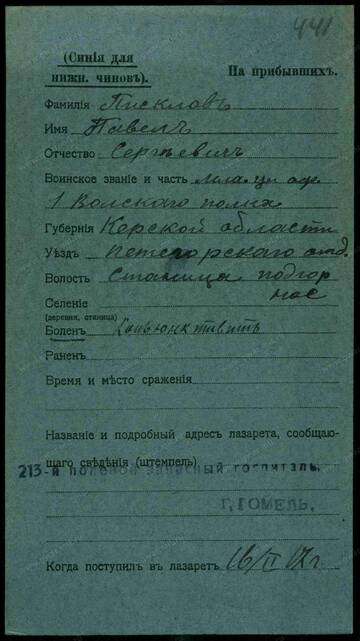 441
(Синія для
нижн. чиновъ).
На прибывшихъ.
Фамилія Пискловъ
Имя Павелъ
Отчество Сергѣевичъ
Воинское званіе и часть
1 Волскаго полка
Губернія Керской области
Уѣздъ петегорскаго отд.
Волость Станица подгор
Селеніе ное
(деревня, станица)
Боленъ Конъюнктивитъ
Раненъ
Время и мѣсто сраженія
Названіе и подробный адресъ лазарета, сообщаю-
щаго свѣдѣнія (штемпель)
213-й полевой запасный госпиталь.
Г. ГОМЕЛЬ.
Когда поступилъ въ лазаретъ 16/II 17 г